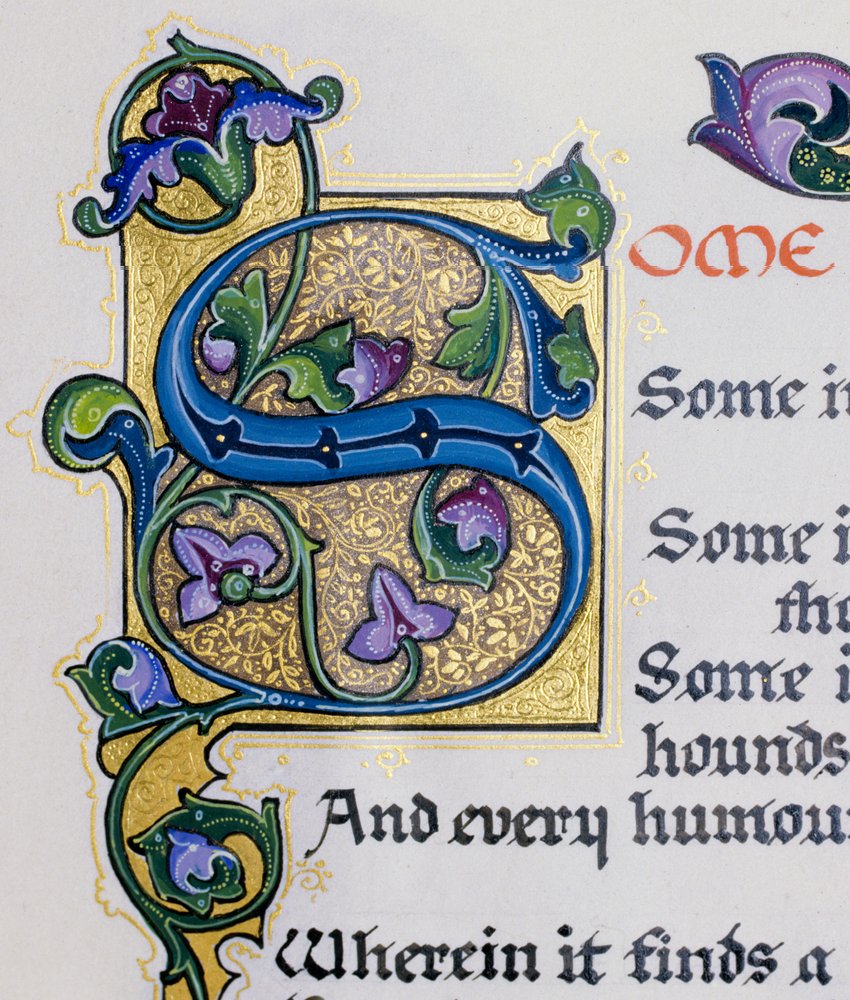 SOME
Some in
Some i
tho
Some i
hounds
And every humour
Wherein it finds a